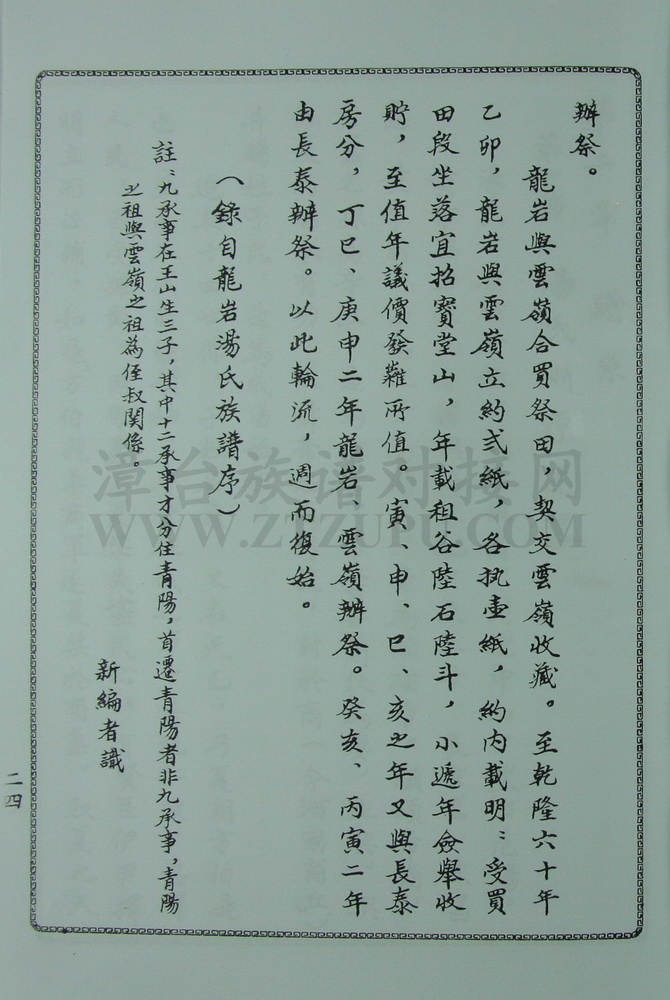 辦祭。
龍岩與雲嶺合買祭田，契交雲嶺收藏。至乾隆六十年
乙卯，龍岩與雲嶺立約弍紙，各执壺紙，約内載明：受買
田段坐落宜招寶堂山，年載租谷陸石陸斗，小遞年僉舉收
貯，至值年議價發難所值。寅、申、巳、亥之年又與長泰
房分，丁巳、庚申二年龍岩、雲嶺辦祭。癸亥、丙寅二年
由長泰辦祭。以此輪流，週而復始。
（錄自龍岩湯氏族譜序）
註：九承事在王山生三子，其中十二承事才分住青陽，首遷青陽者非九承事，青陽
之祖與雲嶺之祖為侄叔関係。
新編者識
二四
漳台族谱对接网
WWW.ZTZUPU.COM